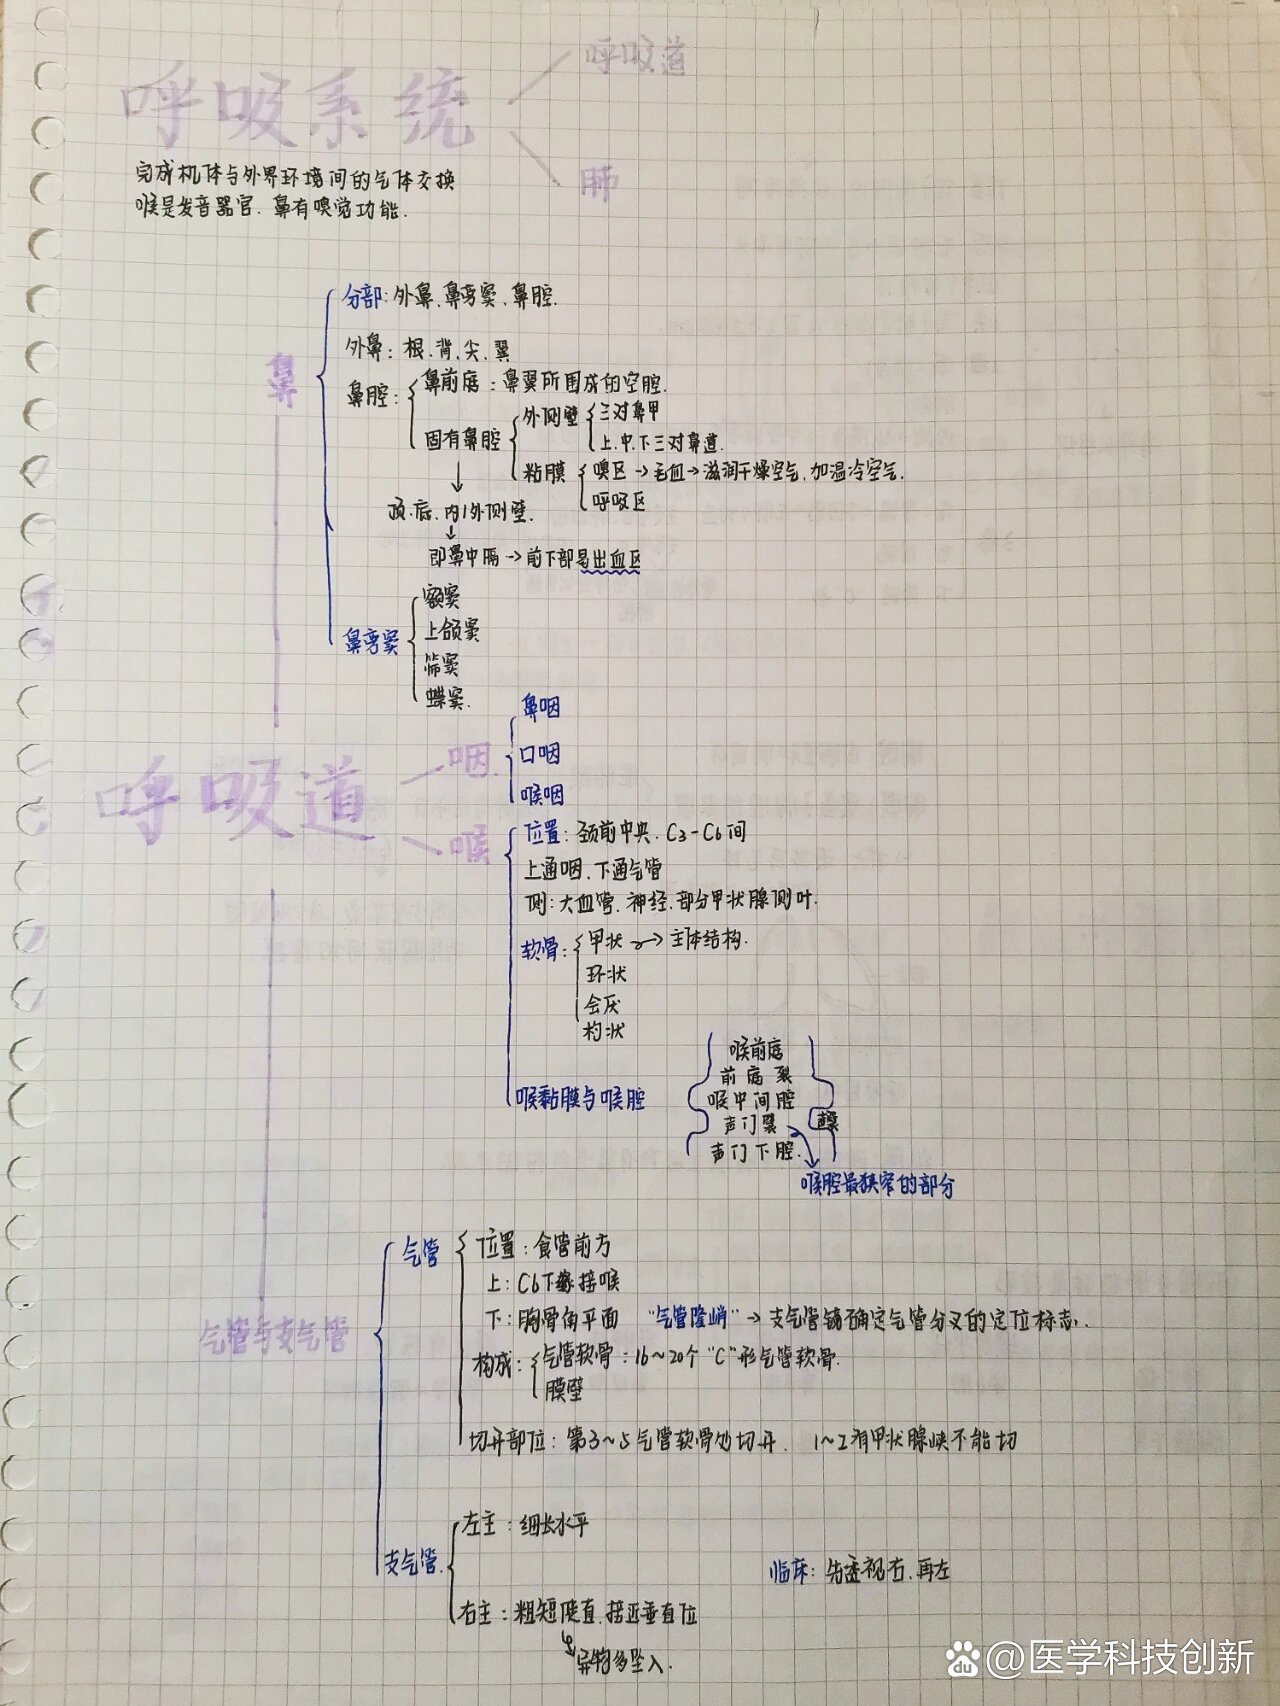 呼吸道
呼吸系统
肺
完成机体与外界环境间的气体交换
喉是发音器官.鼻有嗅觉功能.
分部:外鼻、鼻旁窦、鼻腔.
鼻
外鼻:根、背、尖、翼
鼻腔:
鼻前庭:鼻翼所围成的空腔.
固有鼻腔
外侧壁
三对鼻甲
上.中.下三对鼻道.
粘膜
嗅区→毛血→滋润干燥空气,加温冷空气.
呼吸区
顶.底、内/外侧壁.
即鼻中隔→前下部易出血区
鼻旁窦
额窦
上颌窦
筛窦
蝶窦.
呼吸道
咽
鼻咽
口咽
喉咽
喉
位置:颈前中央.C3-C6间
上通咽、下通气管
侧:大血管、神经、部分甲状腺侧叶.
软骨:
甲状→主体结构.
环状
会厌
杓状
喉黏膜与喉腔
喉前庭
前庭裂
喉中间腔
声门裂
声门下腔.
喉腔最狭窄的部分
气管与支气管
气管
位置:食管前方
上:C6下缘接喉
下:胸骨角平面 “气管隆嵴”→支气管镜确定气管分叉的定位标志.
构成:
气管软骨:16~20个“C”形气管软骨.
膜壁
切开部位:第3~5气管软骨处切开. 1~2有甲状腺峡不能切
支气管.
左主:细长水平
临床:先查视右.再左
右主:粗短陡直.接近垂直位
异物多坠入.
Bai du @医学科技创新